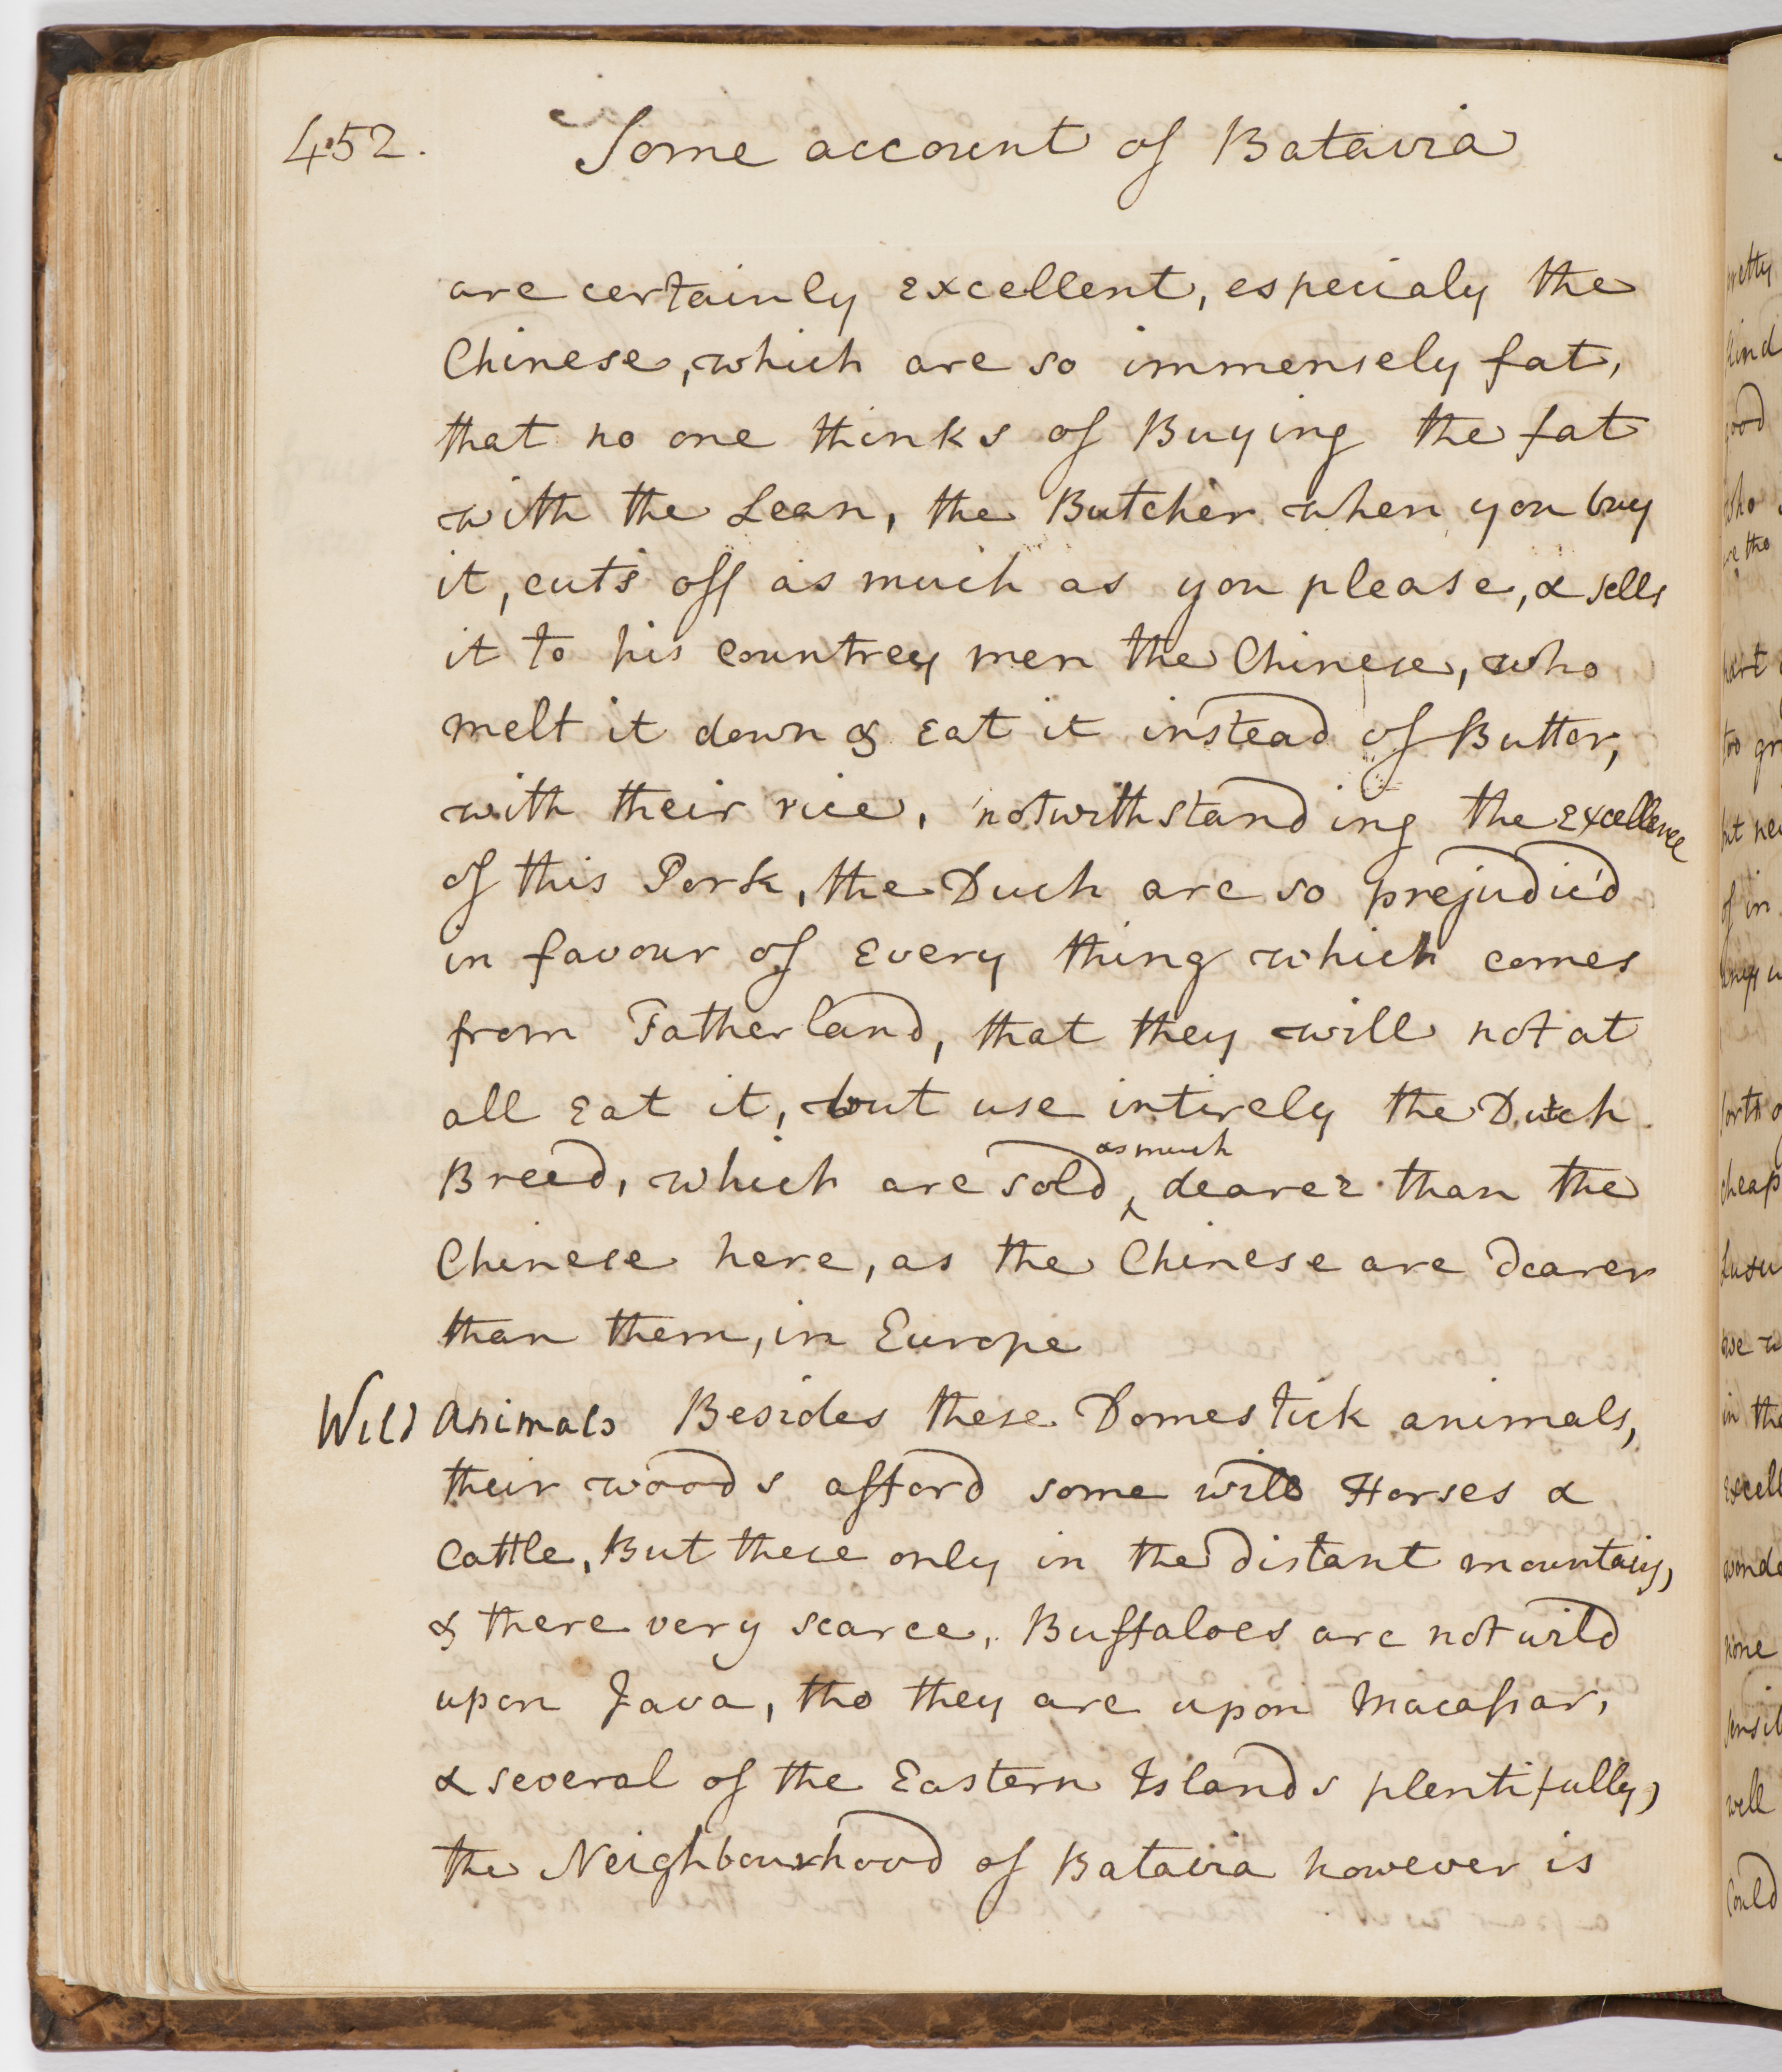 452. Some account of Batavia
are certainly excellent, especialy the
Chinese, which are so immensely fat,
that no one thinks of Buying the fat
with the Lean, the Butcher when you buy
it, cuts off as much as you please, & sells
it to his countrey men the Chinese, who
melt it down & Eat it instead of Butter,
with their rice, notwithstanding the Excellence
of this Pork, the Duch are so prejudic'd
in favour of Every thing which comes
from Fatherland, that they will not at
all Eat it, but use intirely the Dutch
as much
Breed, which are sold ‸ dearer than the
Chinese here, as the Chinese are dearer
than them, in Europe
Wild Animals Besides these Domestick animals,
their woods afford some wild Horses &
Cattle, But these only in the distant mountains,
& there very scarce, Buffaloes are not wild
upon Java, tho they are upon Macassar,
& several of the Eastern Islands plentifully,
the Neighbourhood of Batavia however is